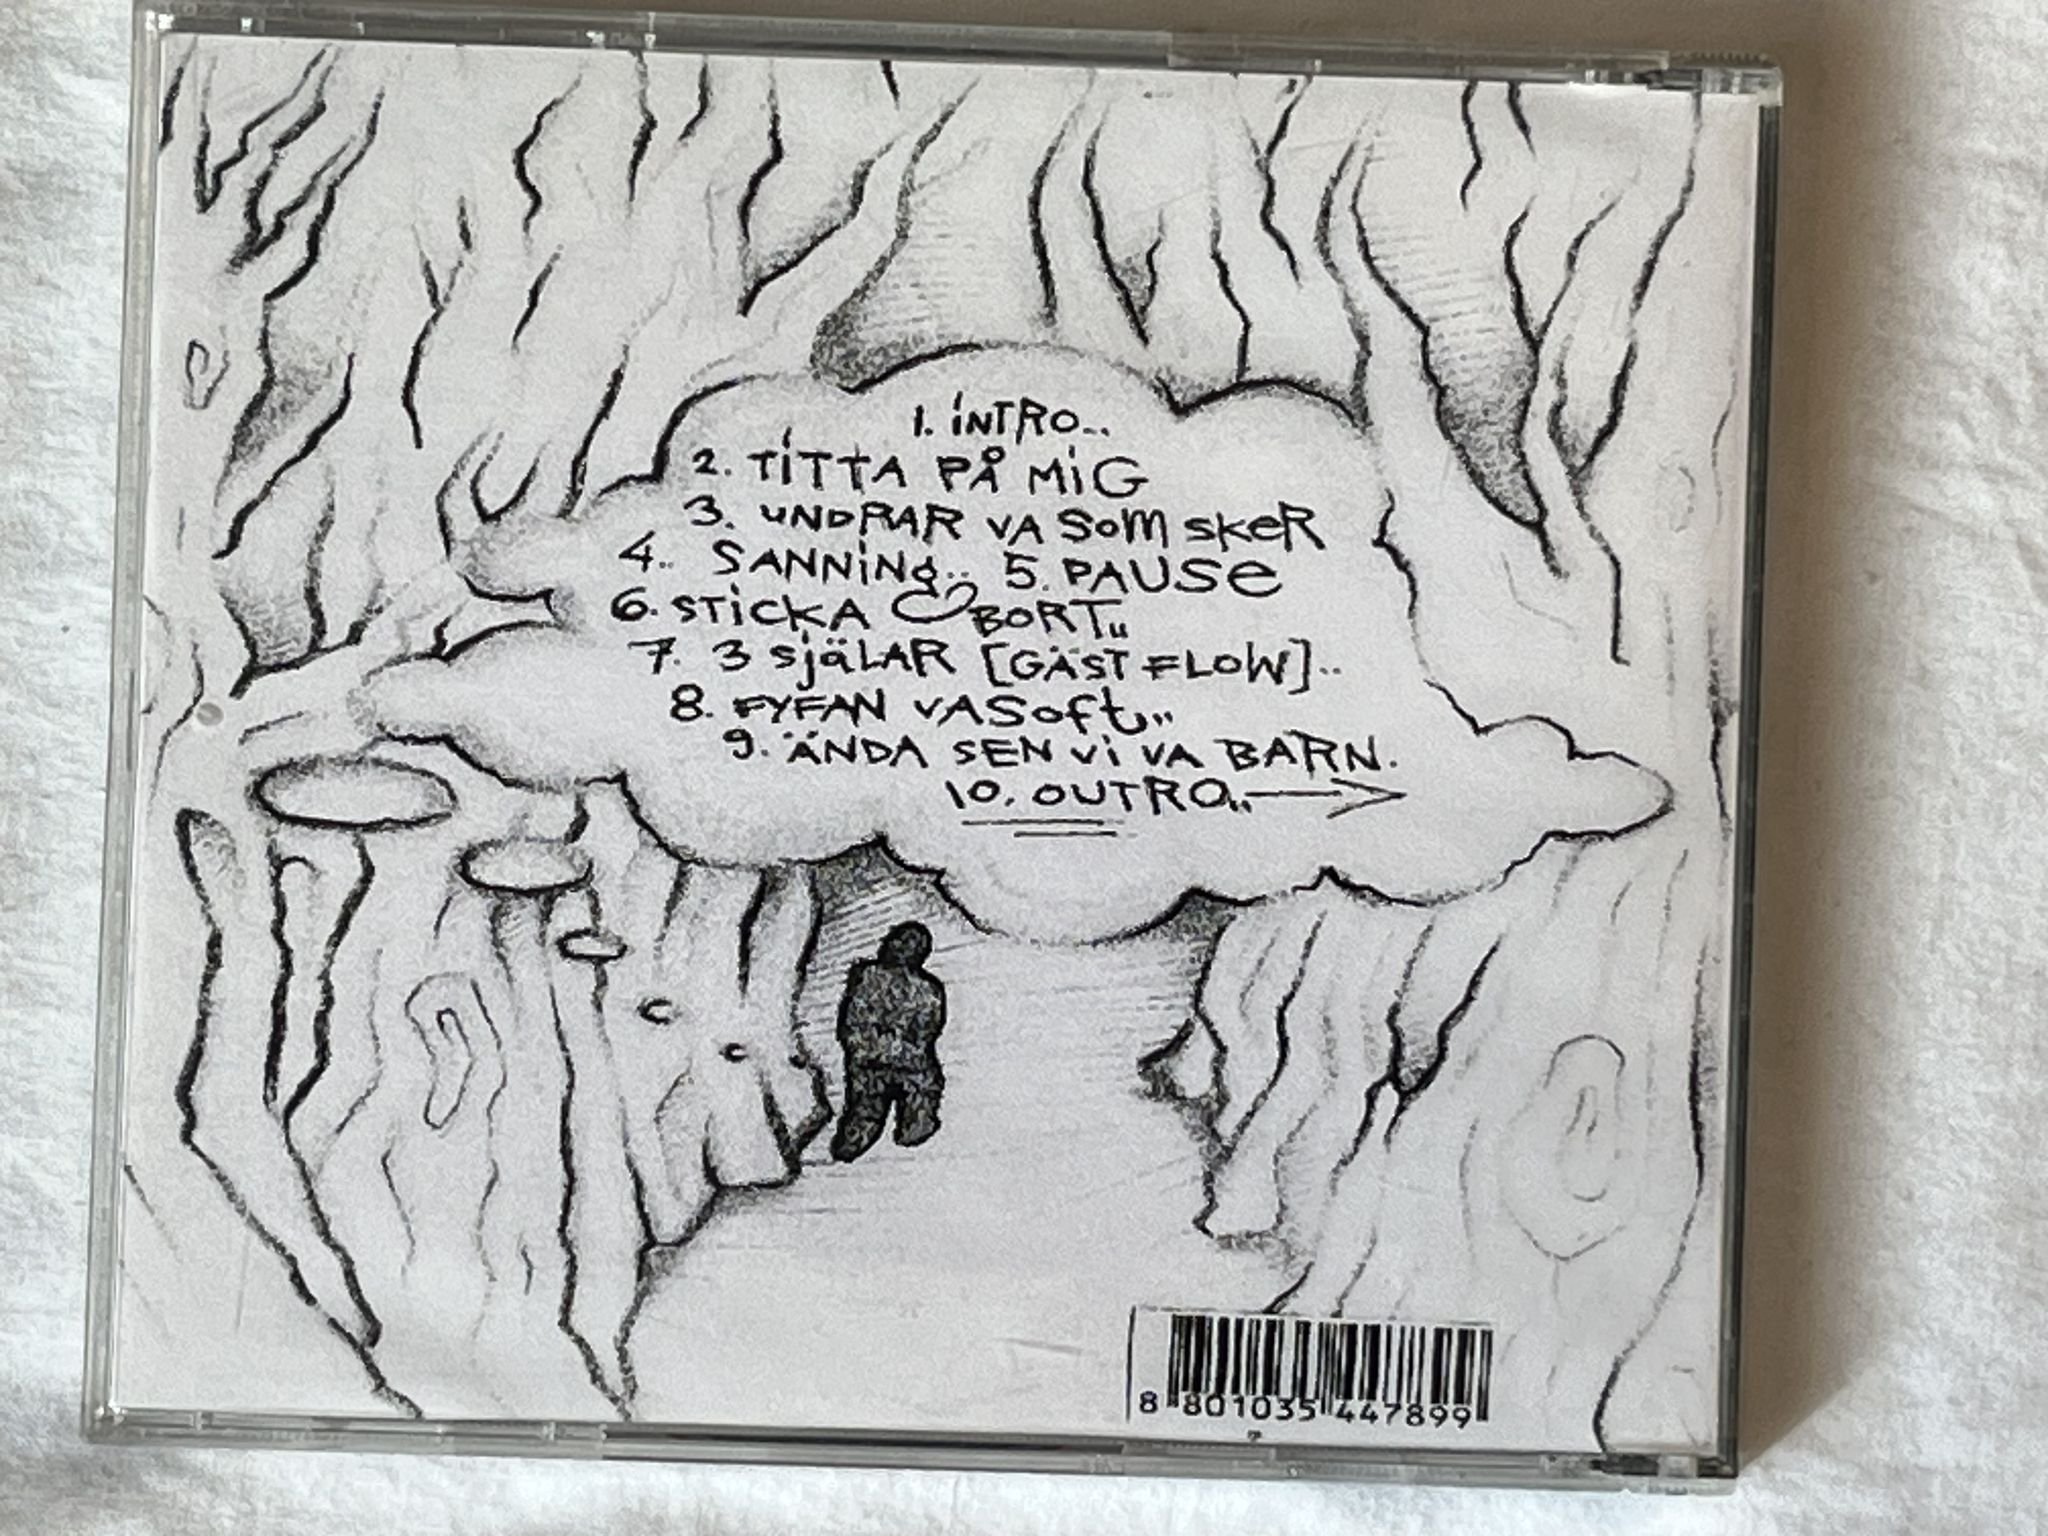 1. iNTRO..
2. TiTTA PÅ MiG
3. UNDRAR VA SOM SKeR
4.. SANNiNg.. 5. PAUSe
6. STiCKA & BORT,,
7. 3 SjäLAR [GÄST FLOW]..
8. FYFAN VA Soft,,
9. ÄNDA SEN Vi VA BARN.
10. OUTRO..→
8 801035 447899